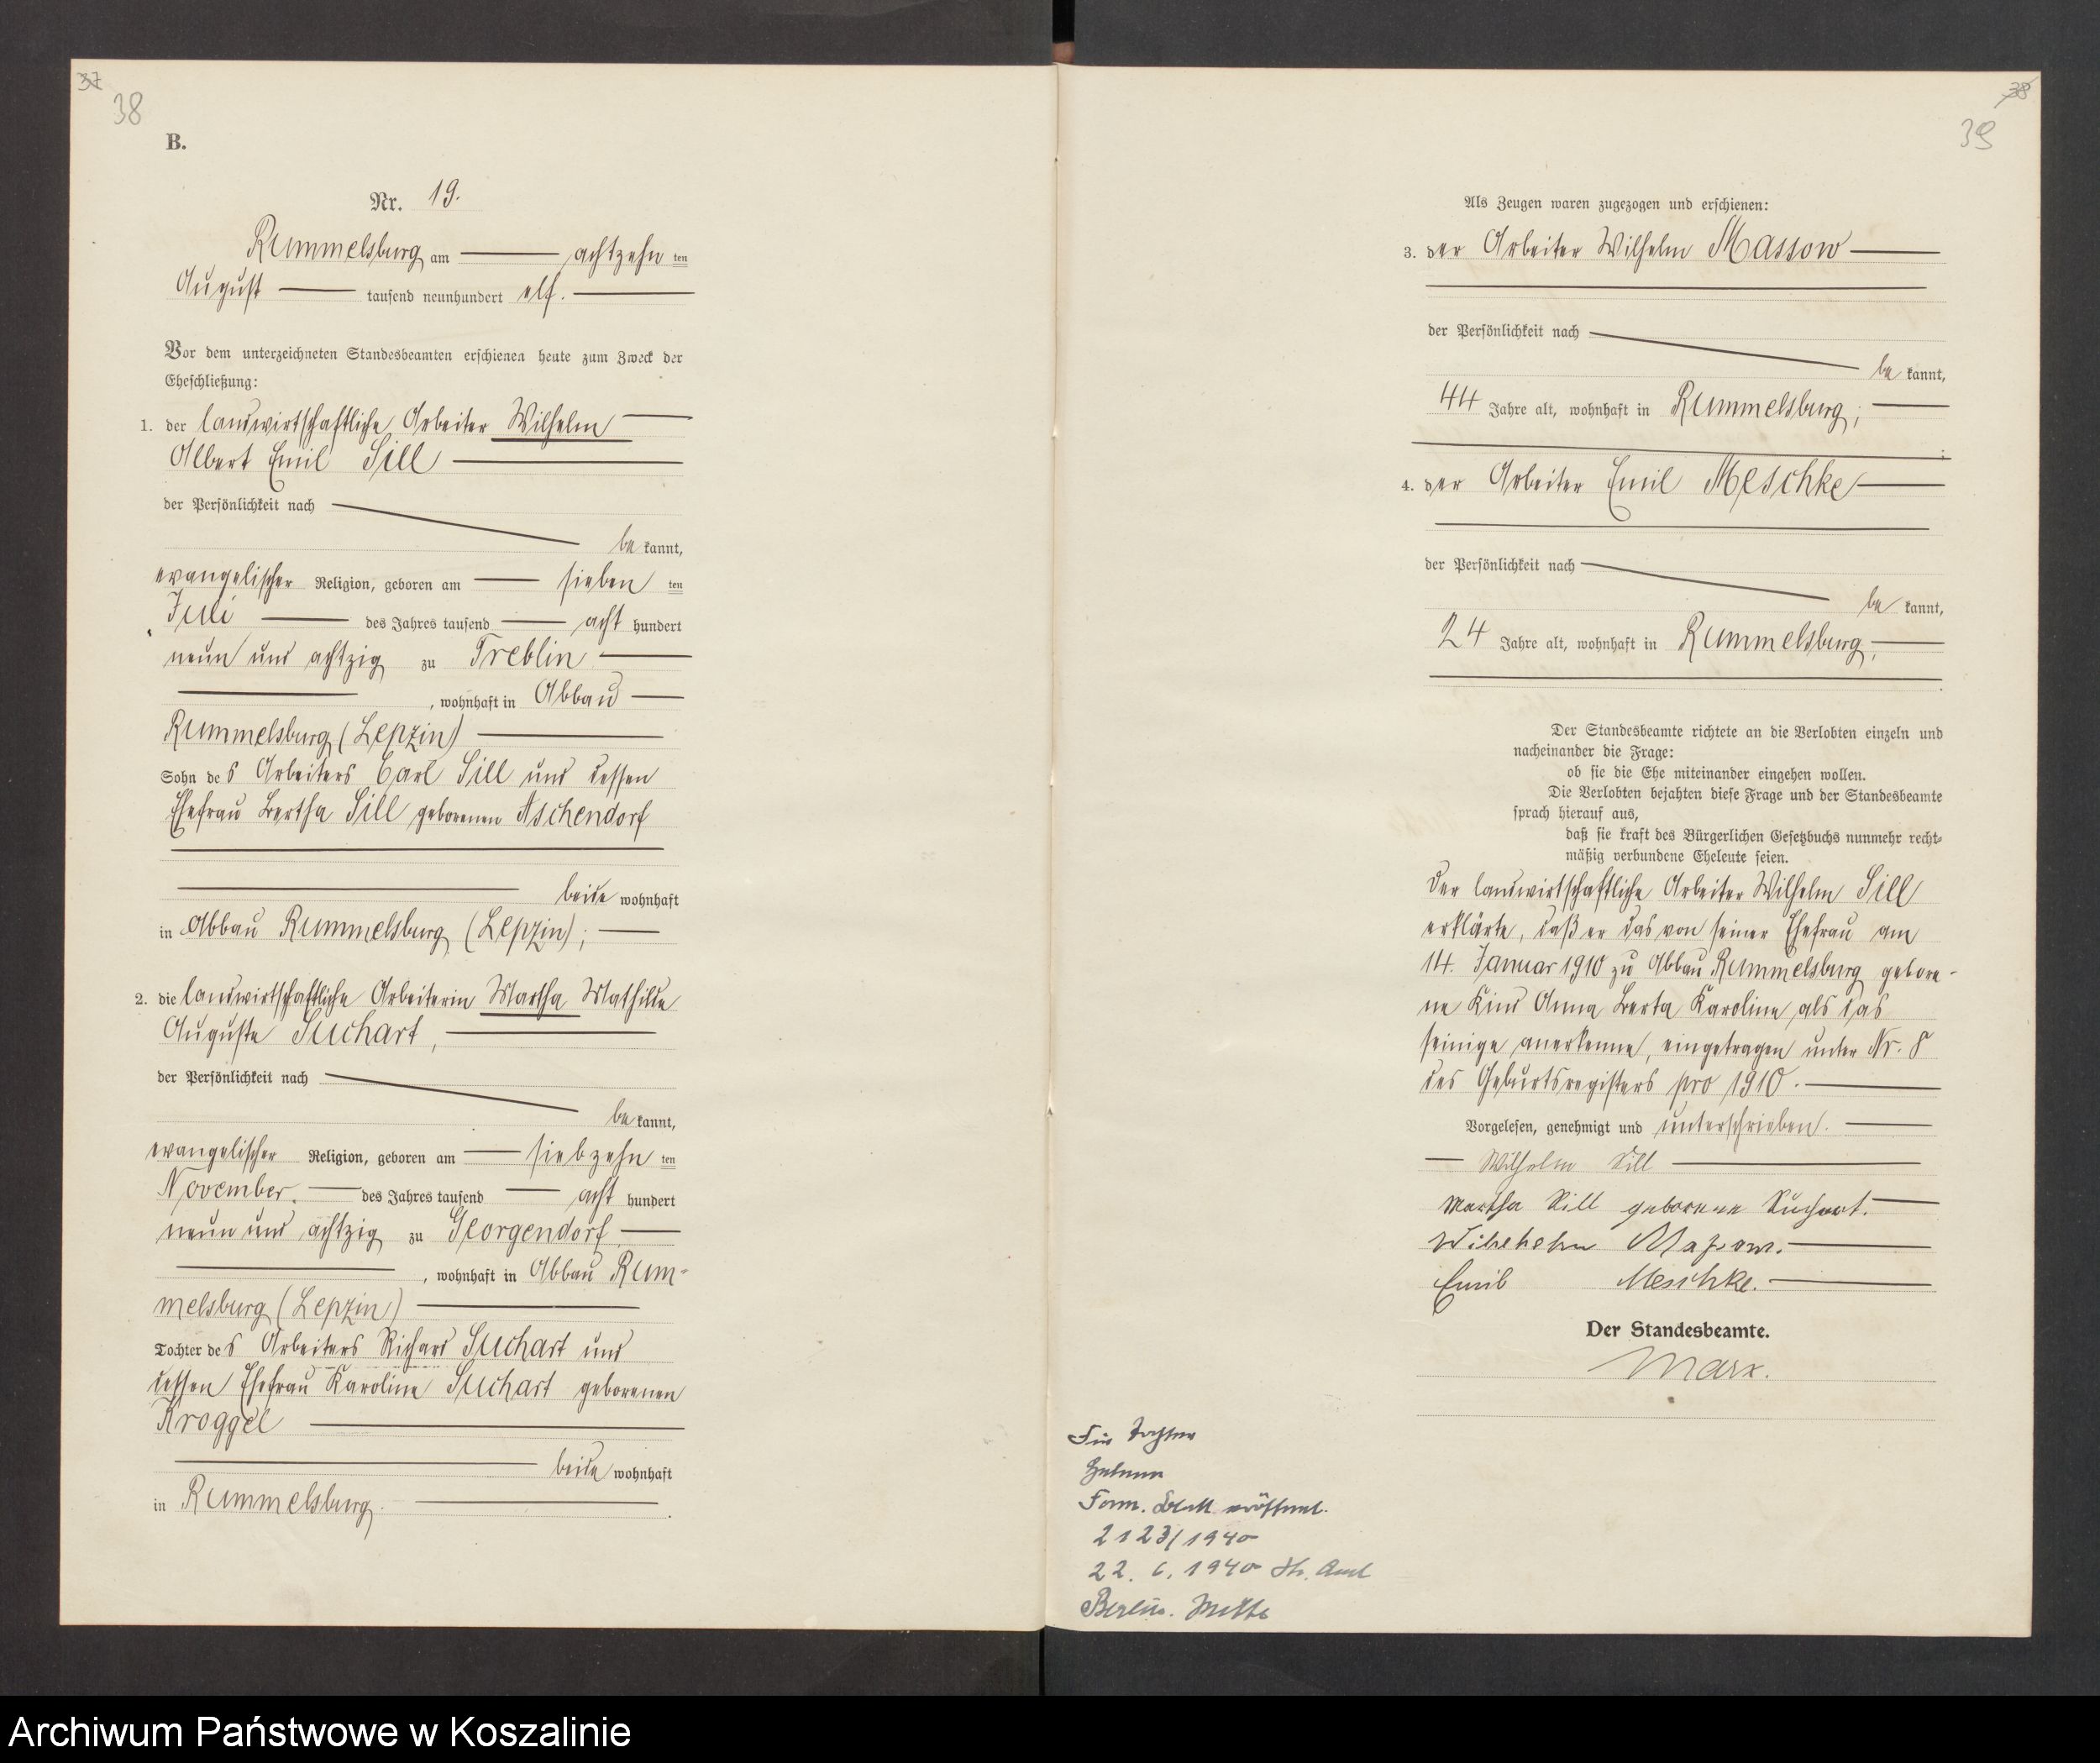 37
38
B.
Nr. 19.
Rummelsburg am achtzehn ten
August tausend neunhundert elf.
Vor dem unterzeichneten Standesbeamten erschienen heute zum Zweck der
Eheschließung:
1. der landwirtschaftliche Arbeiter Wilhelm
Albert Emil Sill
der Persönlichkeit nach
be kannt,
evangelischer Religion, geboren am sieben ten
Juli des Jahres tausend acht hundert
neun und achtzig zu Treblin
, wohnhaft in Abbau
Rummelsburg (Lepzin)
Sohn des Arbeiters Carl Sill und dessen
Ehefrau Bertha Sill geborenen Aschendorf
beide wohnhaft
in Abbau Rummelsburg (Lepzin);
2. die landwirtschaftliche Arbeiterin Martha Mathilde
Auguste Suchart,
der Persönlichkeit nach
be kannt,
evangelischer Religion, geboren am siebzehn ten
November. des Jahres tausend acht hundert
neun und achtzig zu Georgendorf
, wohnhaft in Abbau Rum-
melsburg (Lepzin)
Tochter des Arbeiters Richard Suchart und
dessen Ehefrau Karoline Suchart geborenen
Kroggel
beide wohnhaft
in Rummelsburg.
38
39
Als Zeugen waren zugezogen und erschienen:
3. der Arbeiter Wilhelm Massow
der Persönlichkeit nach
be kannt,
44 Jahre alt, wohnhaft in Rummelsburg;
4. der Arbeiter Emil Meschke
der Persönlichkeit nach
be kannt,
24 Jahre alt, wohnhaft in Rummelsburg,
Der Standesbeamte richtete an die Verlobten einzeln und
nacheinander die Frage:
ob sie die Ehe miteinander eingehen wollen.
Die Verlobten bejahten diese Frage und der Standesbeamte
sprach hierauf aus,
daß sie kraft des Bürgerlichen Gesetzbuchs nunmehr recht-
mäßig verbundene Eheleute seien.
Der landwirtschaftliche Arbeiter Wilhelm Sill
erklärte, daß er das von seiner Ehefrau am
14. Januar 1910 zu Abbau Rummelsburg gebore-
ne Kind Anna Berta Karoline, als das
seinige anerkenne, eingetragen unter Nr. 8
des Geburtsregisters pro 1910.
Vorgelesen, genehmigt und unterschrieben.
Wilhelm Sill
Martha Sill geborene Suchart.
Wilhelm Maßow.
Emil Meschke.
Der Standesbeamte.
Marx.
Tochter
Fam. Blatt eröffnet.
2123/1940
22. 6. 1940 St. Amt
Berlin. Mitte
Archiwum Państwowe w Koszalinie